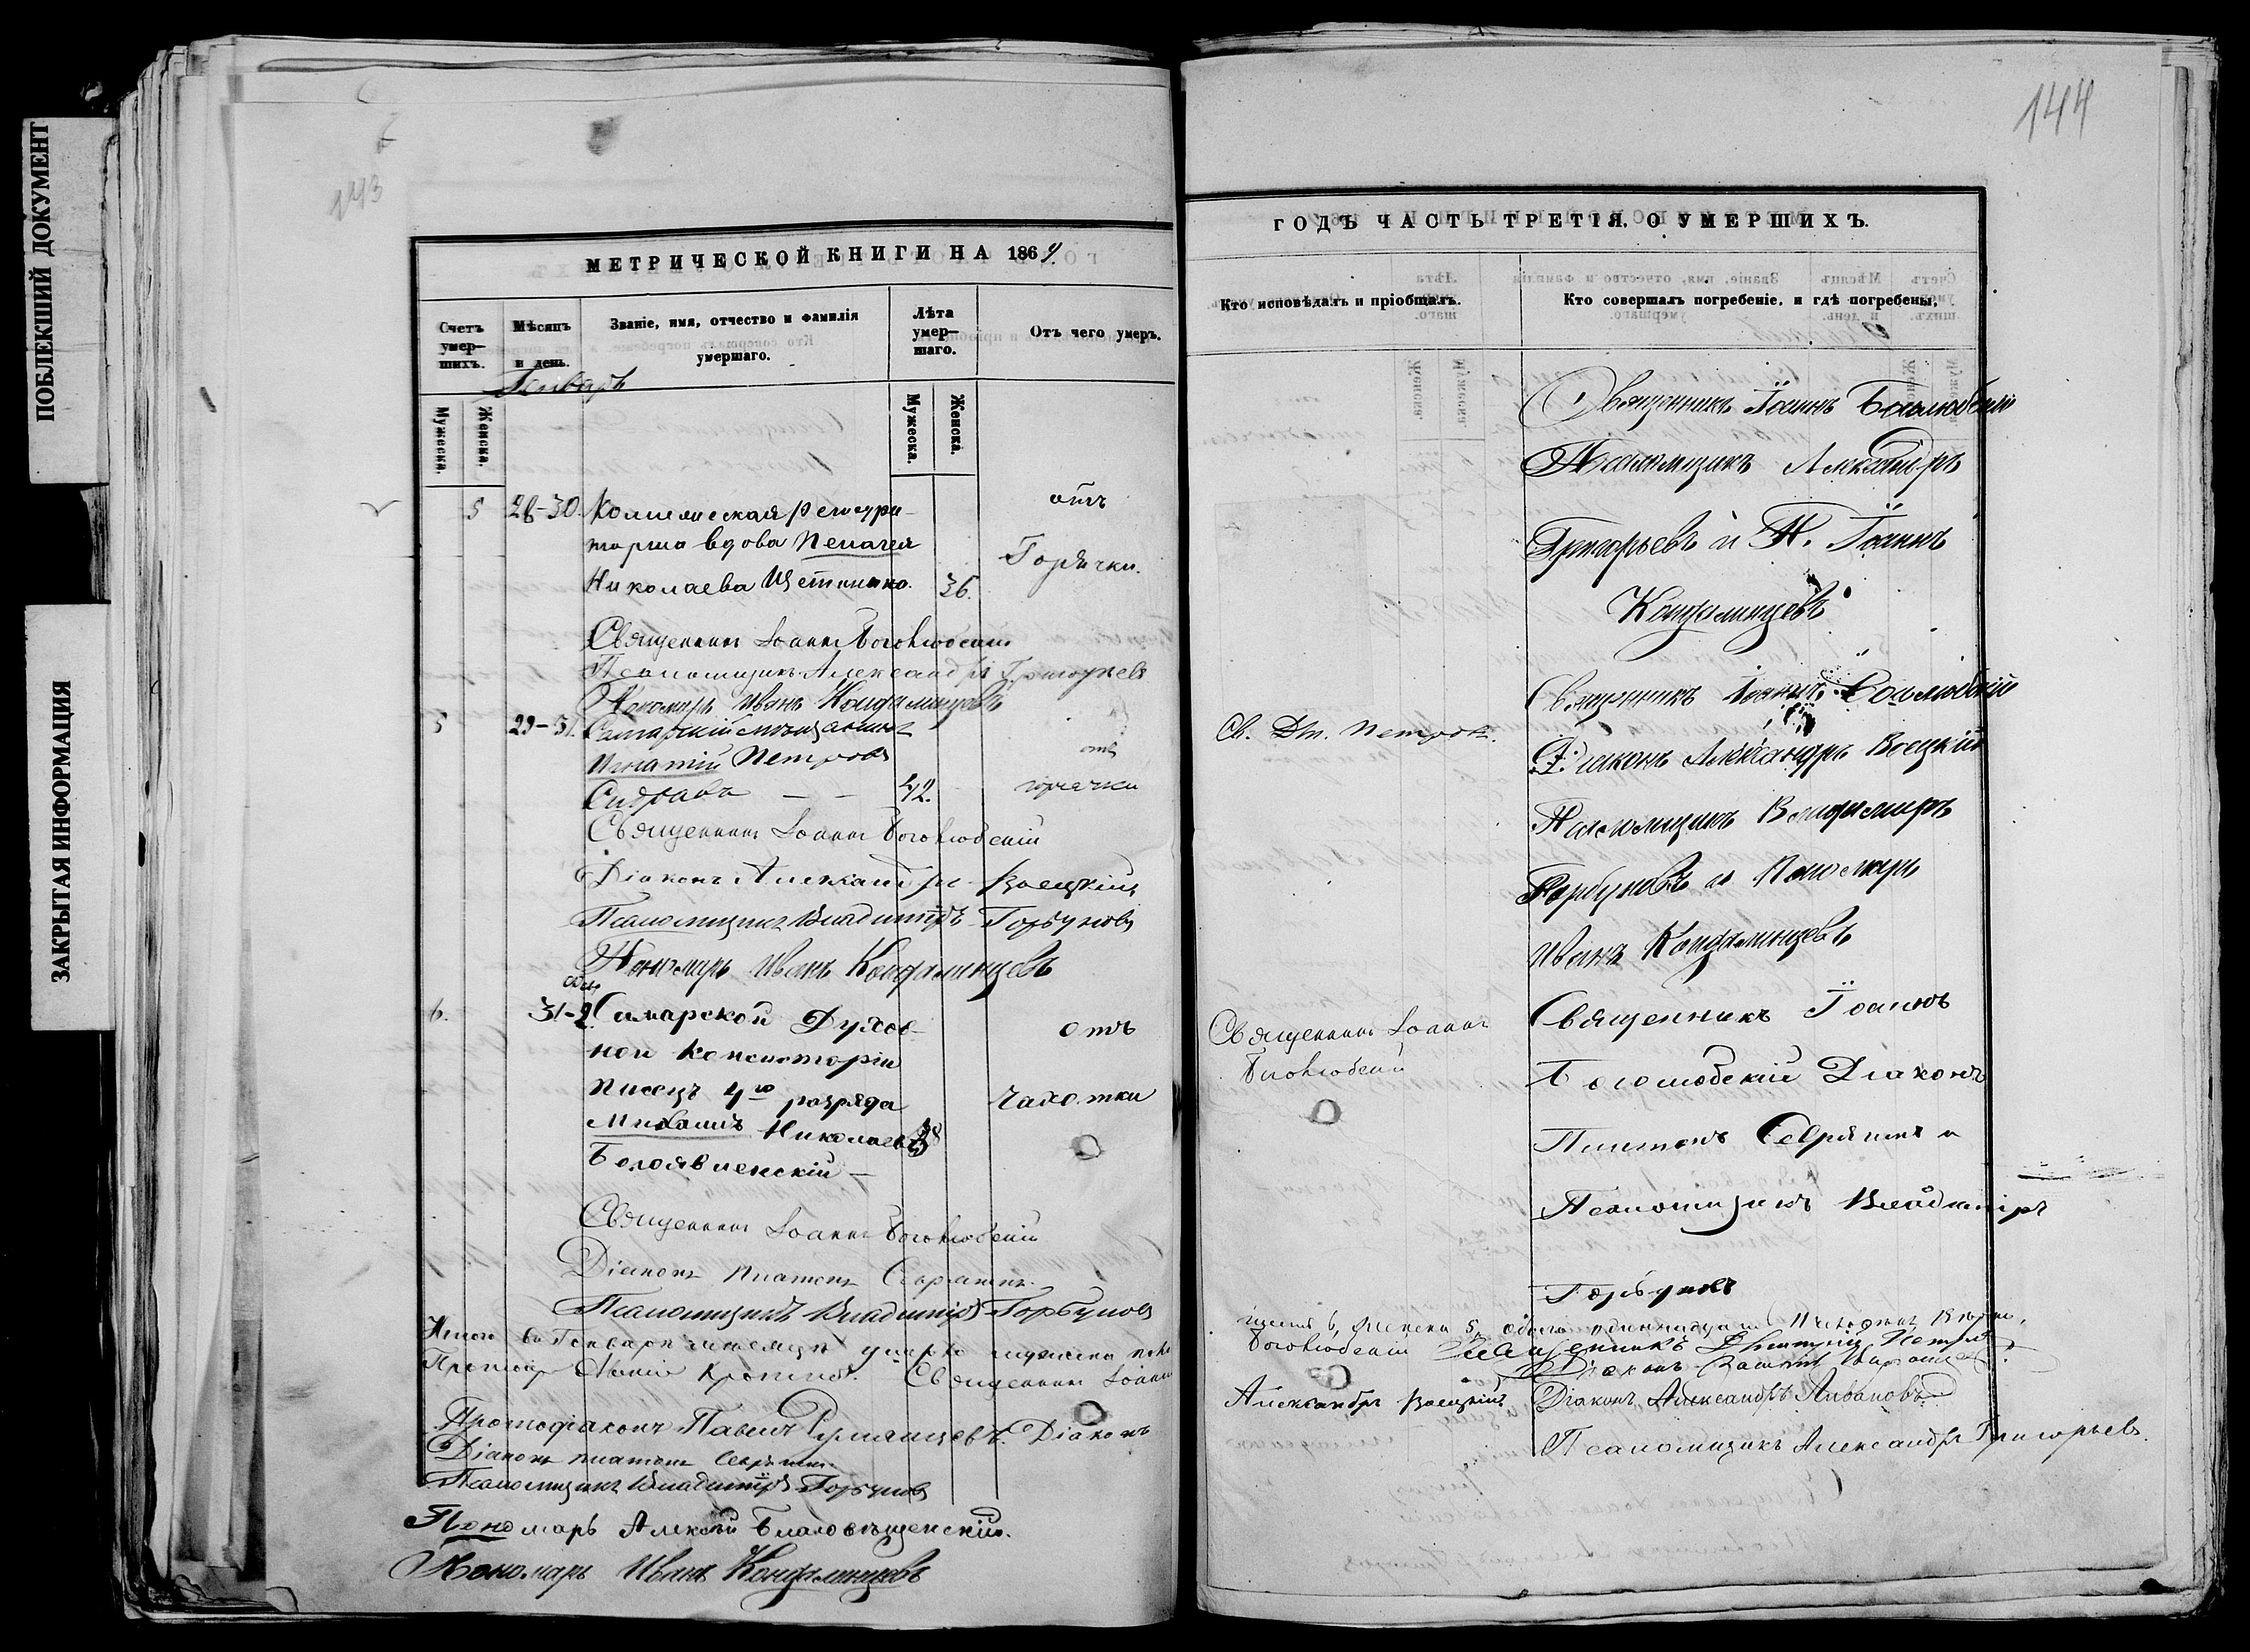 ПОБЛЕКШИЙ ДОКУМЕНТ
ЗАКРЫТАЯ ИНФОРМАЦИЯ
143
МЕТРИЧЕСКОЙ КНИГИ НА 1864
Счетъ умер-шихъ.
Мѣсяцъ и день.
Званіе, имя, отчество и фамилія умершаго.
Лѣта умер-шаго.
Отъ чего умеръ.
Январь
Мужеска. Женска. Мужеска. Женска.
5 28-30. Коллежская регистра- отъ
торша вдова Пелагея
Горячки.
Николаева Щетинко. 36.
Священникъ Іоаннъ Боголюбскій
Псаломщикъ Александръ Григорьевъ
Пономарь Иванъ Кондалинцевъ
5 29-31. Самарскій мѣщанинъ
Игнатій Петровъ отъ
42. горячки
Священникъ Іоаннъ Боголюбскій
Діаконъ Александръ Воецкій
Псаломщикъ Владиміръ Горбуновъ
Пономарь Иванъ Кондалинцевъ
6. 31-2 Самарской Духов- отъ
ной Консисторіи
Писецъ 4го разряда Чахотки
Михаилъ Николаевъ
Богоявленскій
Священникъ Іоаннъ Боголюбскій
Діаконъ Платонъ Севрятинъ
Псаломщикъ Владиміръ Горбуновъ
Итого въ Генварѣ мѣсяцѣ умерло мужеска пола
Священникъ Іоаннъ
Протодіаконъ Павелъ Румянцевъ. Діаконъ
Діаконъ Платонъ
Псаломщикъ Владиміръ Горбуновъ
Пономарь Алексѣй Благовѣщенскій.
Пономарь Иванъ Кондалинцевъ
144
ГОДЪ ЧАСТЬ ТРЕТІЯ. О УМЕРШИХЪ.
Кто исповѣдалъ и пріобщалъ.
Кто совершалъ погребеніе, и гдѣ погребены,
Священникъ Іоаннъ Боголюбскій
Псаломщикъ Александръ
Григорьевъ и П. Іоаннъ
Кондалинцевъ
Священникъ Іоаннъ Боголюбскій
Св. Дм. Петровъ.
Діаконъ Александръ Воецкій
Псаломщикъ Владиміръ
Горбуновъ и Пономарь
Иванъ Кондалинцевъ
Священникъ Іоаннъ
Боголюбскій
Священникъ Іоаннъ
Боголюбскій Діаконъ
Платонъ Севрятинъ и
Псаломщикъ Владиміръ
Горбуновъ
женска 5, обоего одиннадцать
Боголюбскій Священникъ Дмитрій Петровъ
Діаконъ
Александръ Воецкій Діаконъ Александръ Ливановъ
Псаломщикъ Александръ Григорьевъ.